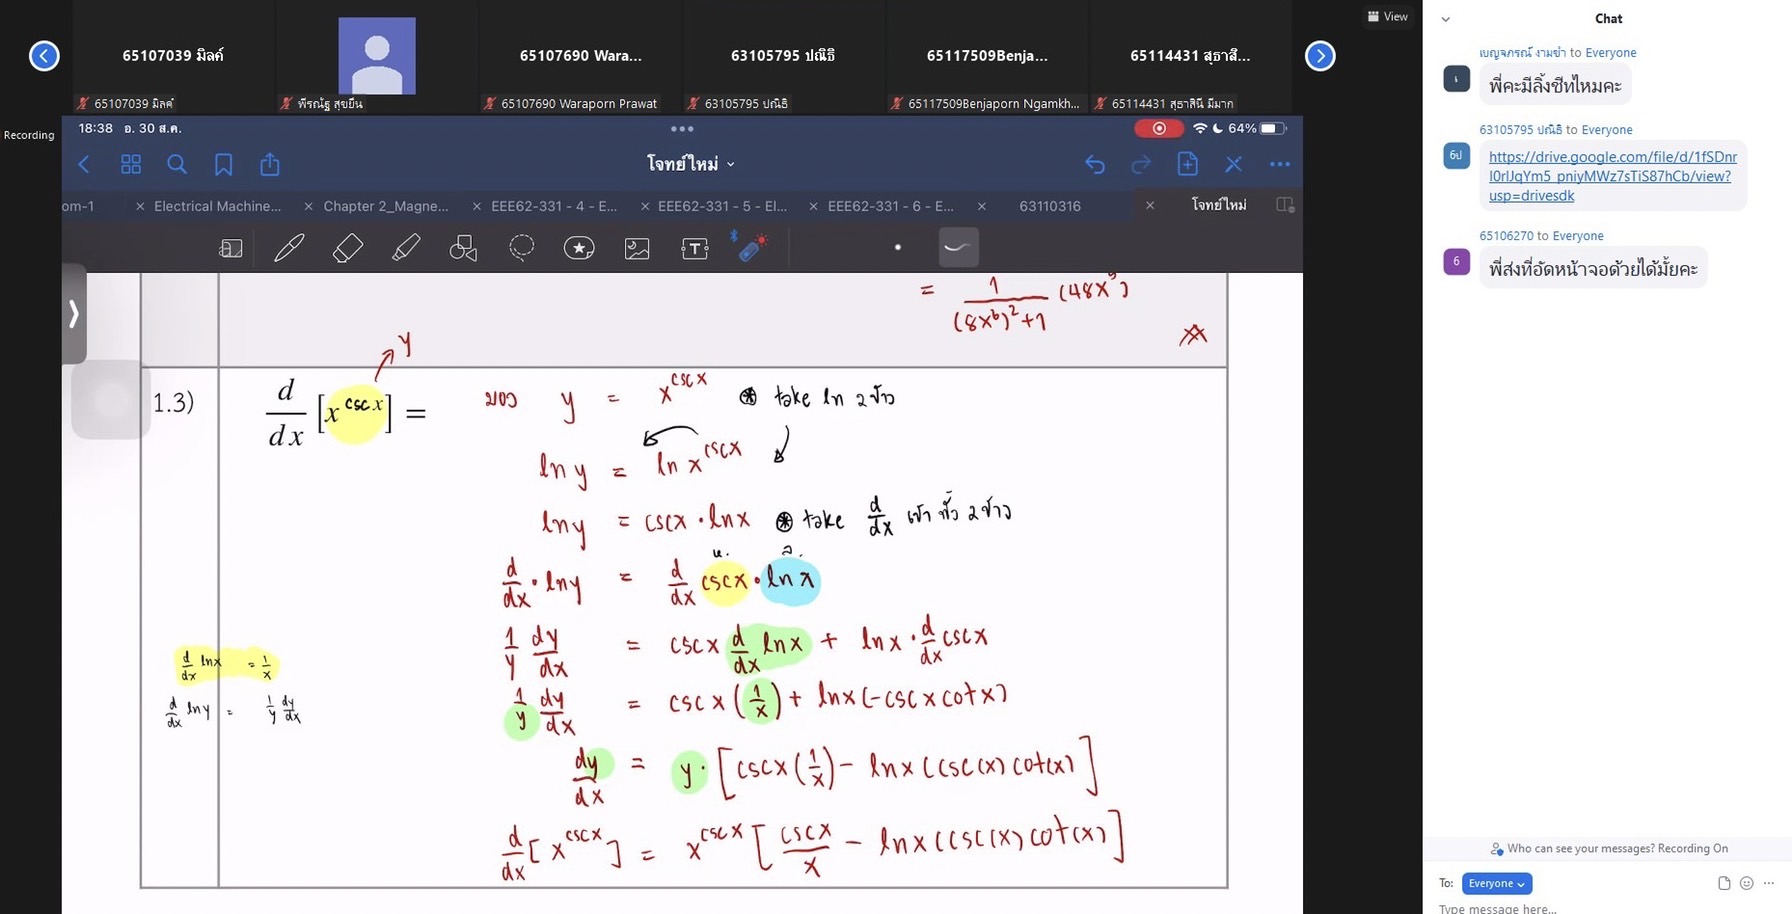 View
Chat
65107039 มิลค์
65107690 Wara...
63105795 ปณิธิ
65117509Benja...
65114431 สุธาสิ...
65107039 มิลค์
พีรณัฐ สุขยืน
65107690 Waraporn Prawat
63105795 ปณิธิ
65117509Benjaporn Ngamkh...
65114431 สุธาสินี มีมาก
Recording
18:38 อ. 30 ส.ค.
64%
โจทย์ใหม่
om-1
Electrical Machine...
Chapter 2_Magne...
EEE62-331 - 4 - E...
EEE62-331 - 5 - El...
EEE62-331 - 6 - E...
63110316
โจทย์ใหม่
= 1/((8x⁶)²+1) (48x⁵)
y
1.3) d/dx [x^(csc x)] =
มอง y = x^(csc x) take ln 2 ข้าง
ln y = ln x^(csc x)
ln y = csc x · ln x take d/dx เข้า ทั้ง 2 ข้าง
d/dx · ln y = d/dx csc x · ln x
1/y dy/dx = csc x d/dx ln x + ln x · d/dx csc x
d/dx ln x = 1/x
1/y dy/dx = csc x (1/x) + ln x (-csc x cot x)
d/dx ln y = 1/y dy/dx
dy/dx = y · [csc x (1/x) - ln x (csc(x) cot(x)]
d/dx [x^(csc x)] = x^(csc x) [csc x/x - ln x (csc(x) cot(x)]
เบญจภรณ์ งามขำ to Everyone
เ
พี่คะมีลิ้งชีทไหมคะ
63105795 ปณิธิ to Everyone
6ป
https://drive.google.com/file/d/1fSDnr
I0rlJqYm5_pniyMWz7sTiS87hCb/view?
usp=drivesdk
65106270 to Everyone
6
พี่ส่งที่อัดหน้าจอด้วยได้มั้ยคะ
Who can see your messages? Recording On
To: Everyone
Type message here...